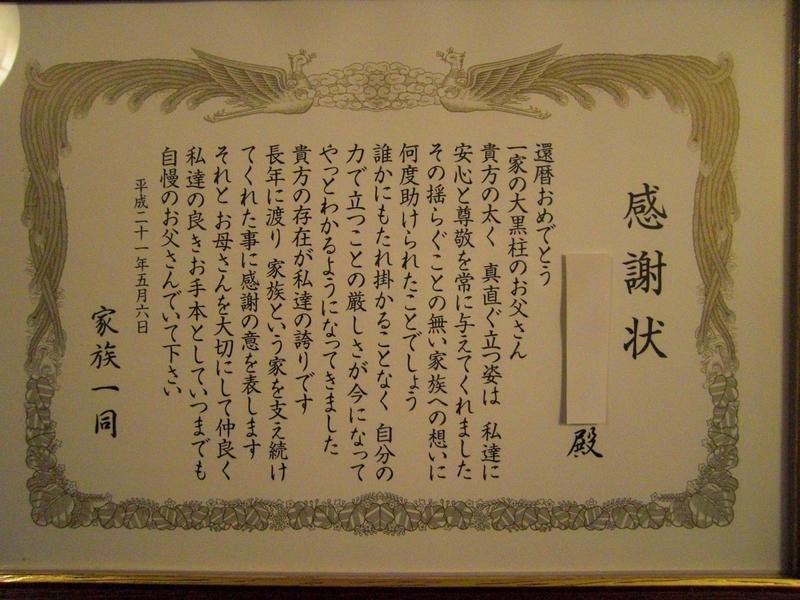 感謝状
殿
還暦おめでとう
一家の大黒柱のお父さん
貴方の太く 真直ぐ立つ姿は 私達に
安心と尊敬を常に与えてくれました
その揺らぐことの無い家族への想いに
何度助けられたことでしょう
誰かにもたれ掛かることなく 自分の
力で立つことの厳しさが今になって
やっとわかるようになってきました
貴方の存在が私達の誇りです
長年に渡り 家族という家を支え続け
てくれた事に感謝の意を表します
それと お母さんを大切にして仲良く
私達の良きお手本としていつまでも
自慢のお父さんでいて下さい
平成二十一年五月六日
家族一同